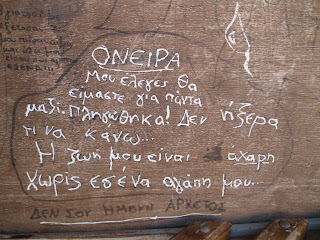 ΟΝΕΙΡΑ
Μου έλεγες θα
είμαστε για πάντα
μαζί. Πληγώθηκα! Δεν ήξερα
τι να κάνω...
Η ζωή μου είναι άχαρη
χωρίς εσένα αγάπη μου...
ΔΕΝ ΣΟΥ ΗΜΟΥΝ ΑΡΚΕΤΟΣ